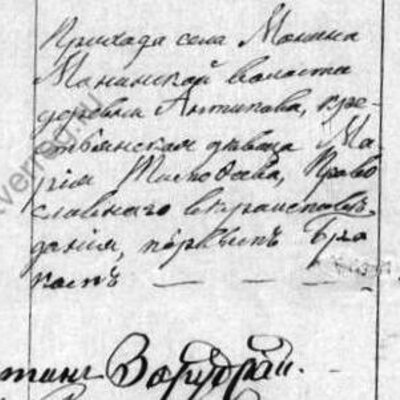 Прихода села Монина
Манинской волости
деревни Антипова, кре-
стьянская дѣвица Ма-
рія Тимофеева, Право
славнаго вѣроисповѣ-
данія, первымъ бра
комъ — — — —